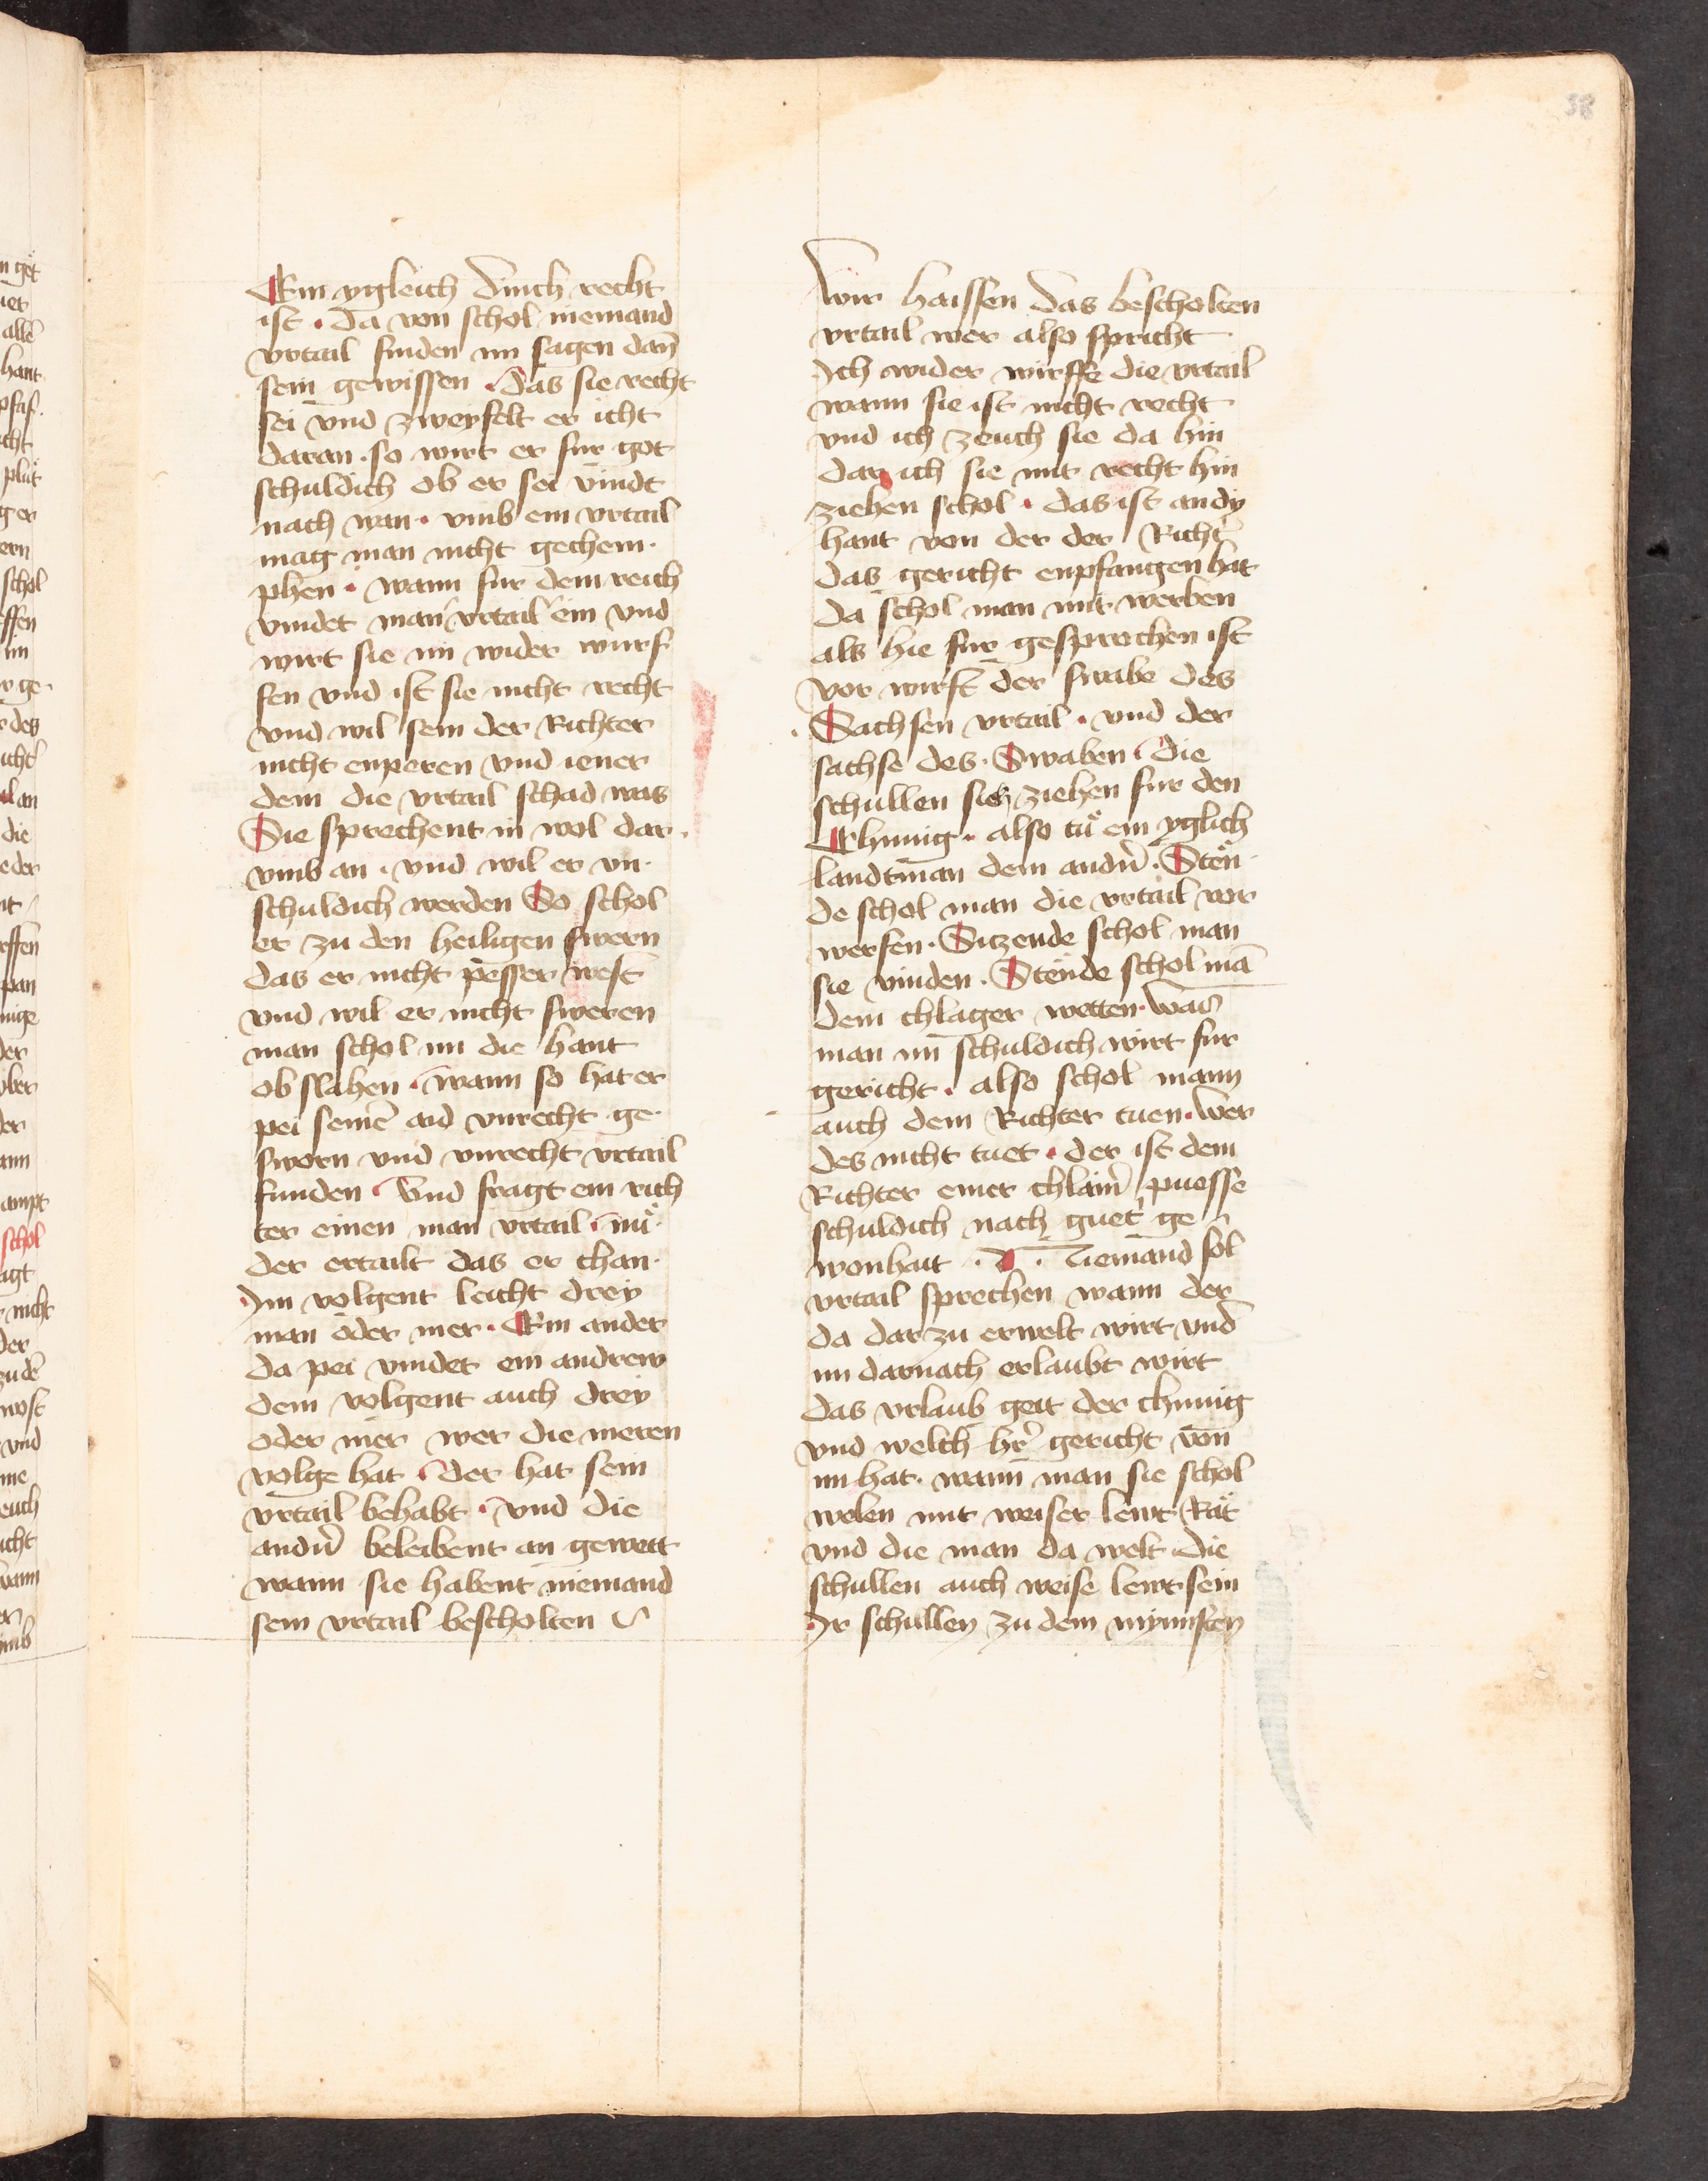 38
Ein ygleich dinch recht
ist . Da von schol niemand
vrtail finden im sagen dan̄
sein gewissen . das sie recht
sei vnd zweyfelt er icht
daran . so wirt er fur got
schuldich ob er sei vindt
nach wan . vmb ein vrtail
mag man nicht gechem .
phen . wann fur dem reich
vindet man vrtail ein vnd
wirt sie im wider wurf
fen vnd ist sie nicht recht
vnd wil sein der Richter
nicht enperen vnd iener
dem die vrtail schad was
Sie sprechent in wol dar .
vmb an . vnd wil er vn .
schuldich werden So schol
er zu den heiligen swern
das er nicht pesser west
vnd wil er nicht sweren
man schol im die hant
ob slahen . wann so hat er
pei seinē aid vnrecht ge .
sworn vnd vnrecht vrtail
funden . Vnd fragt ein rich
ter einen man vrtail . nů .
der ertailt das er chan .
Im volgent leicht drey
man oder mer . Ein ander
da pei vindet ein andrew
dem volgent auch drey
oder mer wer die meren
volge hat . der hat sein
vrtail behabt . vnd die
andn̄ beleibent an gewett
wann sie habent niemand
sein vrtail bescholten
Wir haissen das bescholten
vrtail wer also spricht
Ich wider wirffe die vrtail
wann sie ist nicht recht
vnd ich zeuch sie da hin
dar ich sie mit recht hin
ziehen schol . das ist an dy
hant von der der Richt̄
das gericht enpfangen hat
da schol man mit werben
als hie fur gesprochen ist
vor wirft der swabe des
Sachsen vrtail . vnd der
sachse des . Swaben . die
schullen sich ziehen fur den
Chunig . also tů ein yglich
landtman dem andn̄ . Sten
de schol man die vrtail vor
werfen . Sitzende schol man
sie vinden . Stende schol mā
dem chlager wetten . was
man im schuldich wirt fur
gericht . also schol mann
auch dem Richter tuen . wer
des nicht tuet . der ist dem
Richter einer chlain̄ puesse
schuldich nach guet ge
wonhait . Niemand sol
vrtail sprechen wann der
da dar zu erwelt wirt vnd
im darnach erlaubt wirt
das vrlaub geit der chunig
vnd welch hr̄ gericht von
im hat . wann man sie schol
welen mit weiser lewt Rat
vnd die man da welt die
schullen auch weise lewt sein
Ir schullen zu dem mynnsten